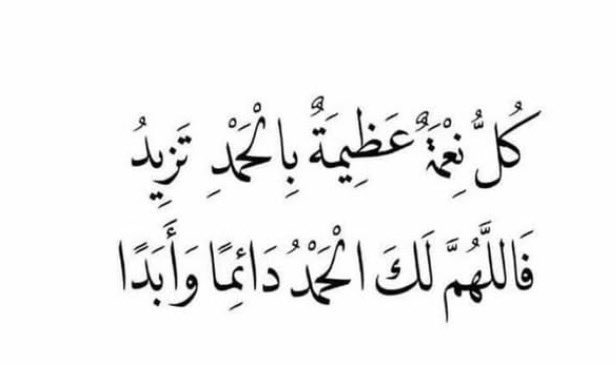 كُلُّ نِعْمَةٌ عَظِيمَةٌ بِالْحَمْدِ تَزِيدُ
فَاللَّهُمَّ لَكَ الْحَمْدُ دَائِمًا وَأَبَدًا